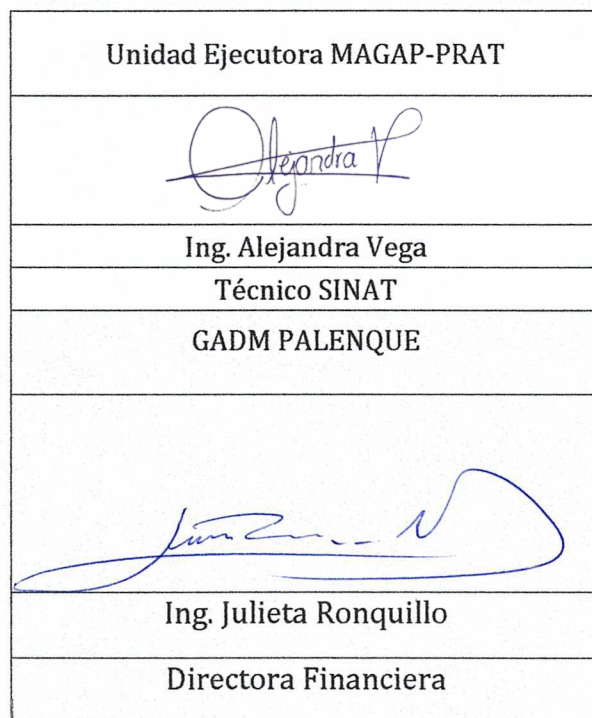 Unidad Ejecutora MAGAP-PRAT
Alejandra V
Ing. Alejandra Vega
Técnico SINAT
GADM PALENQUE
Ing. Julieta Ronquillo
Directora Financiera